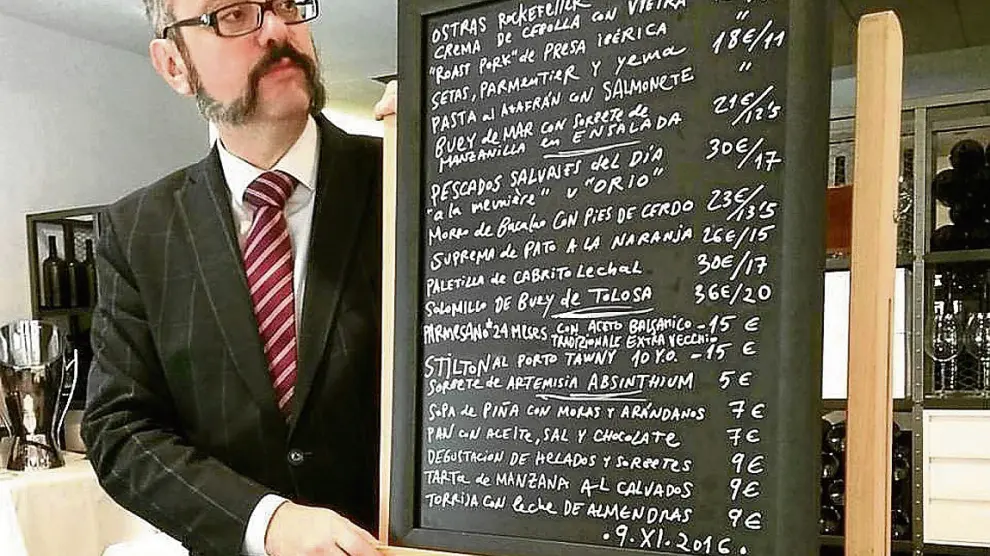 OSTRAS ROCKEFELLER "
CREMA DE CEBOLLA CON VIEIRA "
"ROAST PORK" de PRESA IBÉRICA 18€/11
SETAS, PARMENTIER Y yema "
PASTA al AZAFRÁN CON SALMONETE
BUEY de MAR CON SORBETE de 21€/12'5
MANZANILLA en ENSALADA
PESCADOS SALVAJES del DÍA 30€/17
"a la meunière" u "ORIO"
Morro de Bacalao CON PIES DE CERDO 23€/13'5
SUPREMA DE PATO A LA NARANJA 26€/15
PALETILLA DE CABRITO Lechal 30€/17
Solomillo DE Buey de TOLOSA 36€/20
PARMESANO 24 MESES CON ACETO BALSAMICO - 15 €
TRADIZIONALE EXTRA VECCHIO
STILTON AL PORTO TAWNY 10 Y.O. - 15 €
SORBETE de ARTEMISIA ABSINTHIUM 5€
SOPA de PIÑA CON MORAS Y ARÁNDANOS 7€
PAN CON ACEITE, SAL Y CHOCOLATE 7€
DEGUSTACIÓN DE HELADOS Y SORBETES 9€
TARTA de MANZANA AL CALVADOS 9€
TORRIJA CON leche DE ALMENDRAS 9€
. 9. XI. 2016 .